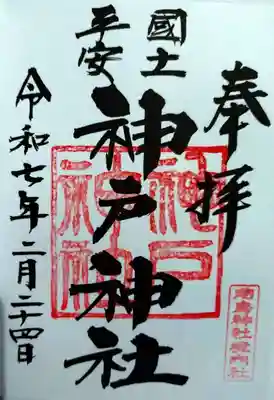 奉拝
國土
平安
神戸神社
神戸
神社
令和七年二月二十四日